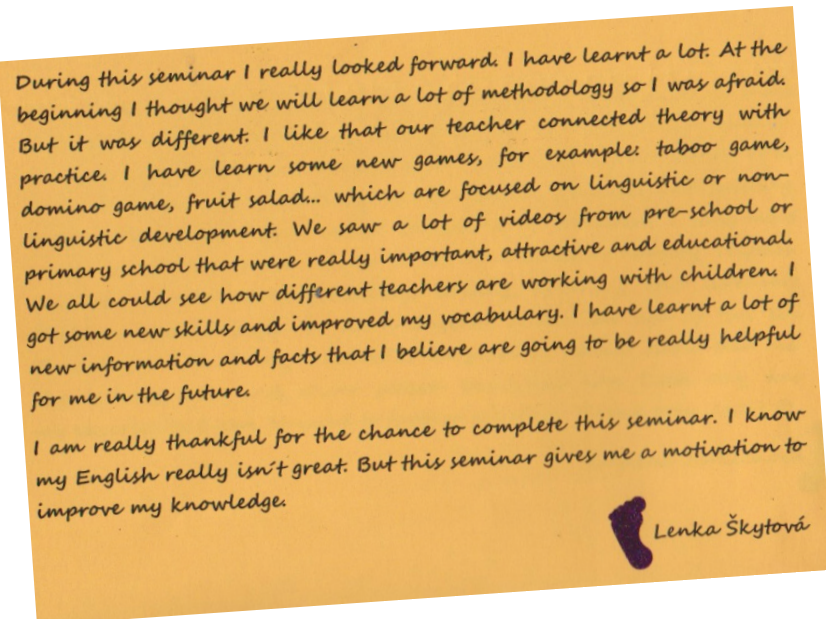 During this seminar I really looked forward. I have learnt a lot. At the
beginning I thought we will learn a lot of methodology so I was afraid.
But it was different. I like that our teacher connected theory with
practice. I have learn some new games, for example: taboo game,
domino game, fruit salad... which are focused on linguistic or non-
linguistic development. We saw a lot of videos from pre-school or
primary school that were really important, attractive and educational.
We all could see how different teachers are working with children. I
got some new skills and improved my vocabulary. I have learnt a lot of
new information and facts that I believe are going to be really helpful
for me in the future.
I am really thankful for the chance to complete this seminar. I know
my English really isn´t great. But this seminar gives me a motivation to
improve my knowledge.
Lenka Škytová